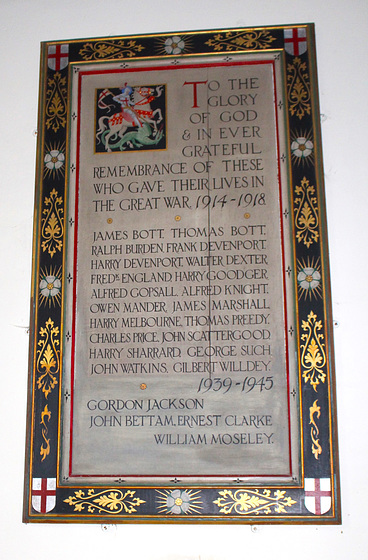 TO THE
GLORY
OF GOD
& IN EVER
GRATEFUL
REMEMBRANCE OF THESE
WHO GAVE THEIR LIVES IN
THE GREAT WAR, 1914-1918.
JAMES BOTT. THOMAS BOTT.
RALPH BURDEN. FRANK DEVENPORT.
HARRY DEVENPORT. WALTER DEXTER.
FREDK ENGLAND. HARRY GOODGER.
ALFRED GOPSALL. ALFRED KNIGHT.
OWEN MANDER. JAMES MARSHALL.
HARRY MELBOURNE. THOMAS PREEDY.
CHARLES PRICE. JOHN SCATTERGOOD.
HARRY SHARRARD. GEORGE SUCH.
JOHN WATKINS. GILBERT WILLDEY.
1939-1945
GORDON JACKSON
JOHN BETTAM. ERNEST CLARKE
WILLIAM MOSELEY.